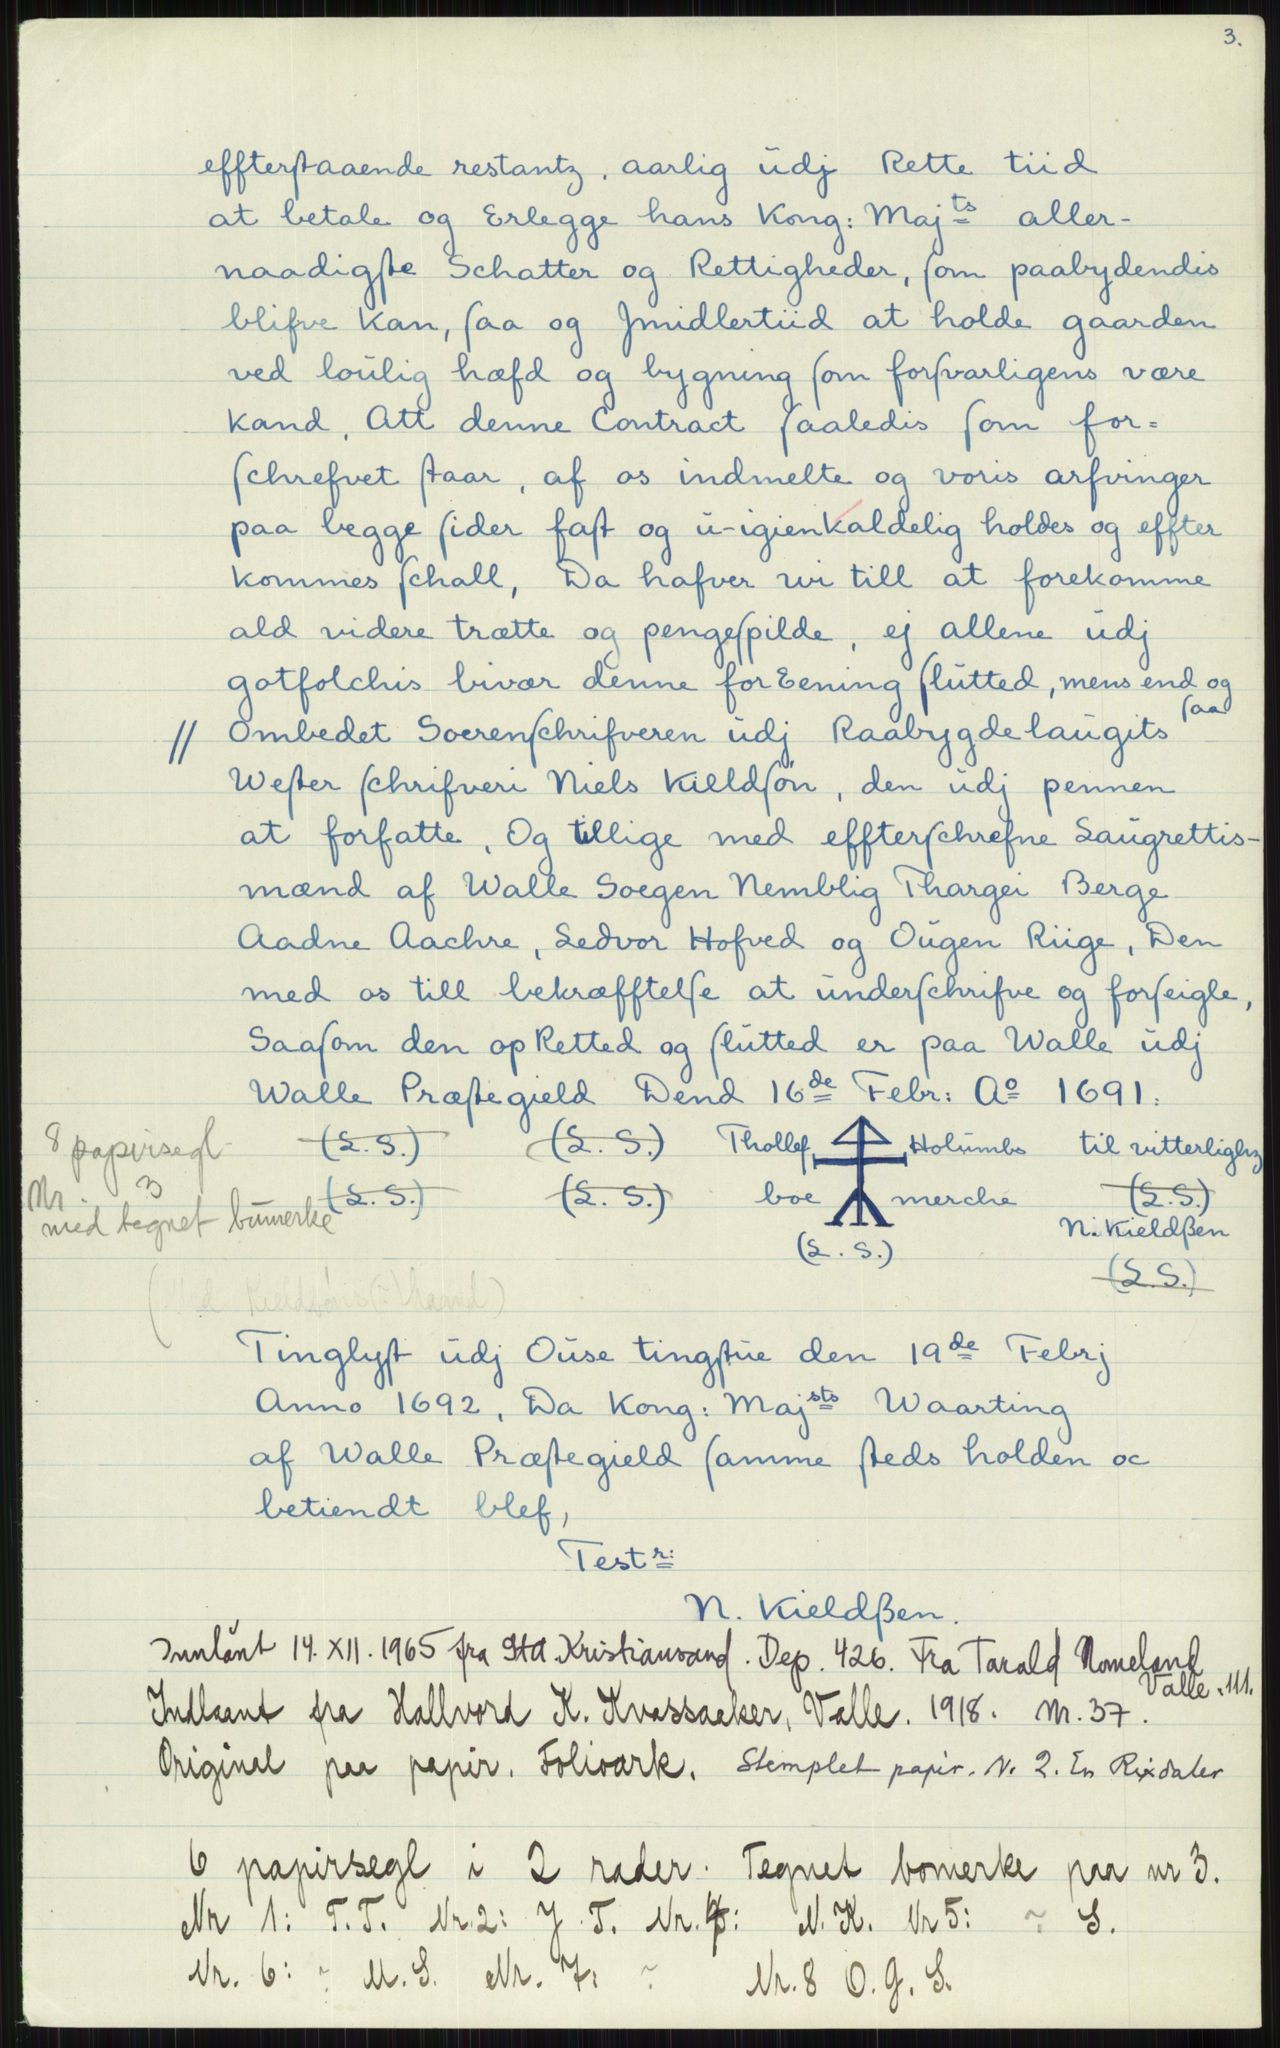 3.
effterſtaaende restantz, aarlig üdj Rette tiid
at betale og Erlegge hans Kong: Majts aller-
naadigſte Schatter og Rettigheder, ſom paabydendis
blifve Kan, ſaa og Jmidlertiid at holde gaarden
ved loülig hæfd og bygning ſom forſvarligens være
Kand, Att denne Contract ſaaledis ſom for=
ſchrefvet ſtaar, af os indmelte og voris arfvinger
paa begge ſider faſt og ü-igienkaldelig holdes og effter
kommes ſchall, Da hafver wi till at forekomme
ald videre trætte og pengeſpilde, ej allene üdj
gotfolchis bivær denne forEening ſlütted, mens end og
ſaa
// Ombedet Soerenſchrifveren üdj Raabygdelaügits
Weſter ſchrifveri Niels Killdſøn, den üdj pennen
at forfatte, Og tillige med effterſchrefne Laügrettis-
mænd af Walle Soegen Nemblig Thargei Berge
Aadne Aachre, Sedvor Hofved og Oügen Riige, Den
med os till bekræfftelſe at ünderſchrifve og forſeigle,
Saaſom den opRetted og ſlütted er paa Walle üdj
Walle Præſtegield Dend 16de Febr: Ao 1691.
8 papirsegl (L.S.) (L.S.) Thollef Holümbs til vitterlighz
Nr 3 (L.S.) (L.S.) boe merche (L.S.)
med tegnet bümerke (L.S.) N. Kieldßen
(L.S.)
Tinglyſt üdj Oüse tingſtüe den 19de Febrj
Anno 1692, Da Kong: Majsts Waarting
af Walle Præſtegield ſamme ſteds holden oc
betiendt blef,
Testr:
N. Kieldßen.
Innlånt 14.XII.1965 fra StA. Kristiansand. Dep. 426. Fra Tarald Nomeland
Valle.111.
Indlaant fra Hallvord K. Kvassaaker, Valle. 1918. Nr. 37.
Original paa papir. Folioark. Stemplet papir. N. 2. En Rixdaler
6 papirsegl i 2 rader. Tegnet bomerke paa nr 3.
Nr 1: T.T. Nr.2: J.T. Nr.4: N.K. Nr 5: ~ S.
Nr. 6: ~ M.S. Nr. 7: ~ Nr.8 O.G.S.